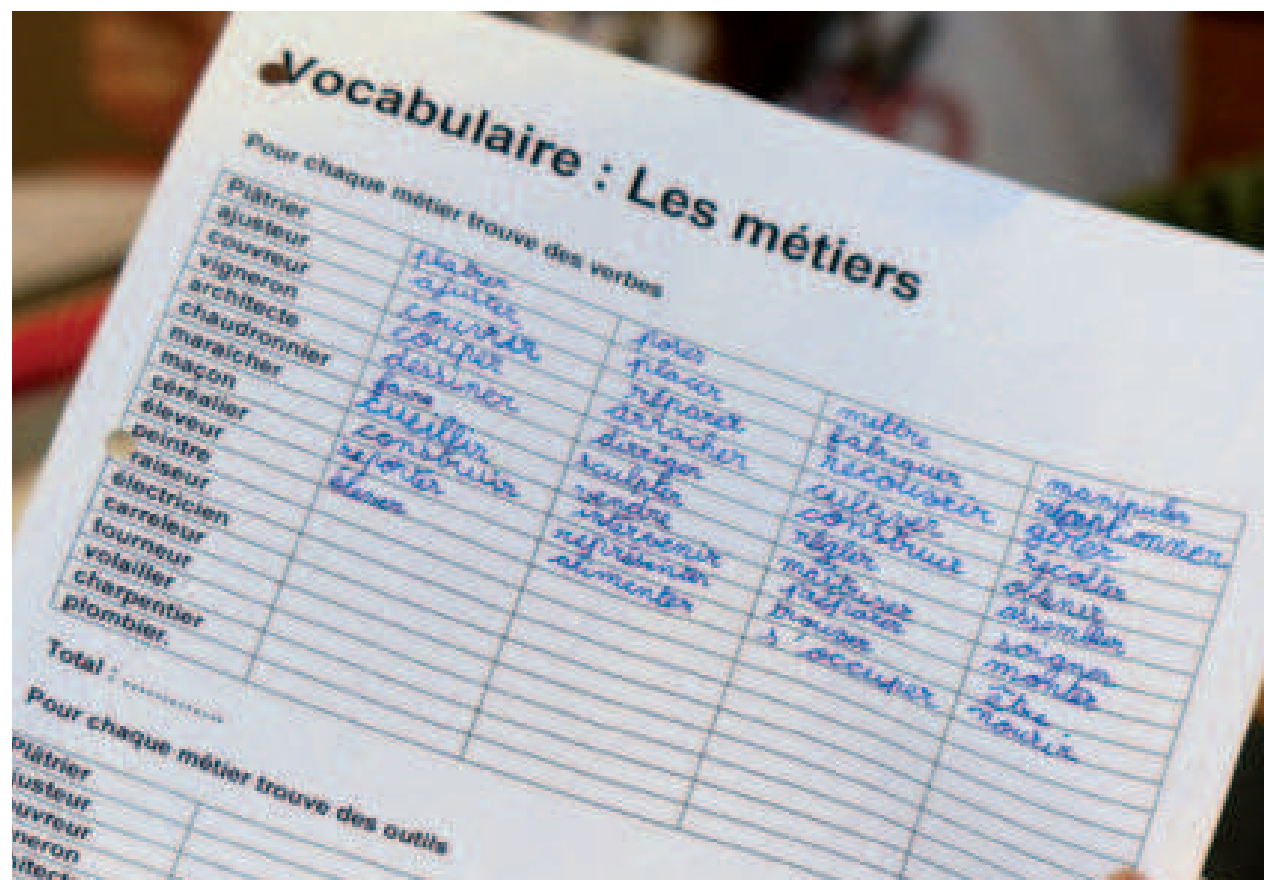 Vocabulaire : Les métiers
Pour chaque métier trouve des verbes
Plâtrier platrer poser mettre manipuler
ajusteur ajuster placer fabriquer
couvreur couvrir réparer recouvrir gérer
vigneron couper arracher cultiver récolter
architecte dessiner diriger construire
chaudronnier faire sculpter régler assembler
maraîcher cueillir vendre maitriser soigner
maçon construir intervenir préparer monter
céréalier reporter représenter trouver être
éleveur élever alimenter s'occuper nourir
peintre
électricien
carreleur
tourneur
volailler
charpentier
plombier.
Total : ............
Pour chaque métier trouve des outils
Plâtrier
justeur
ouvreur
neron
hitect